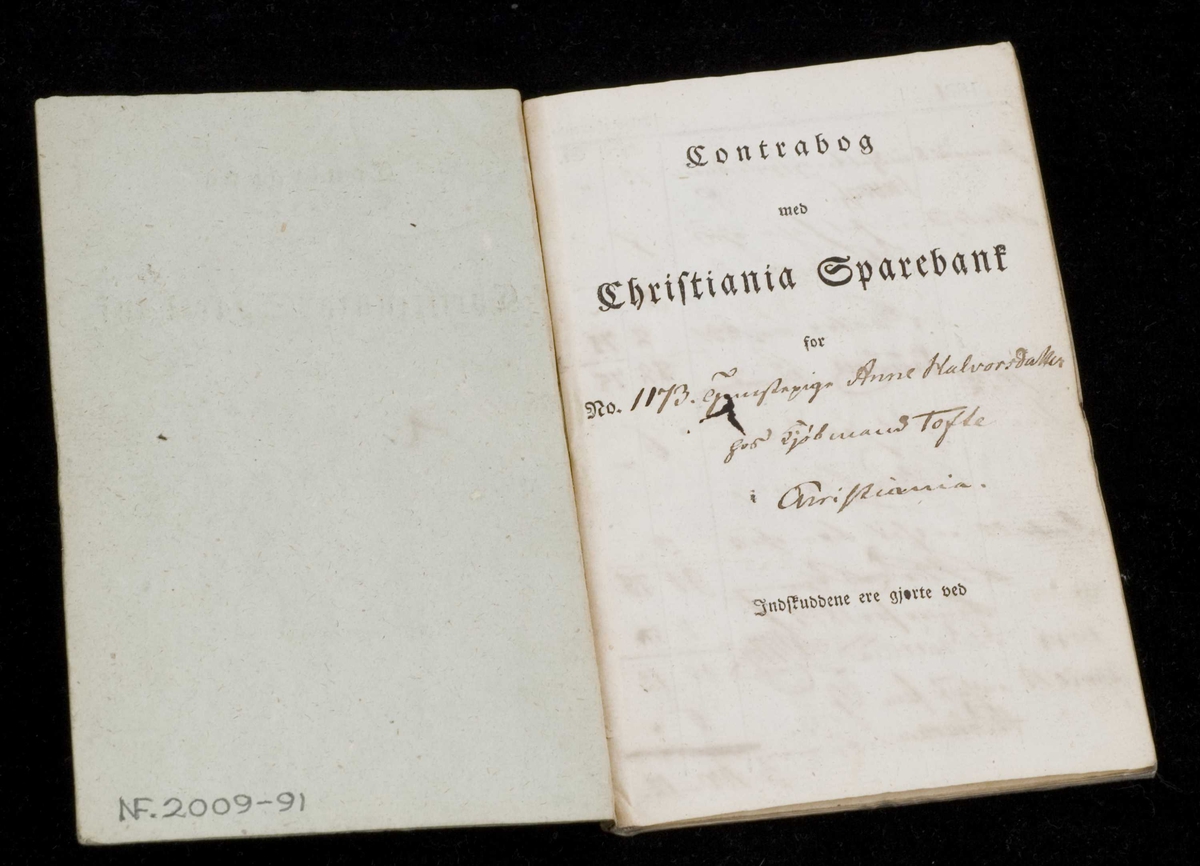 NF. 2009-91
Contrabog
med
Christiania Sparebank
for
No. 1173. Tjenstepige Anne Halvorsdatter
hos Kjøbmand Tofte
i Christiania.
Indskuddene ere gjorte ved